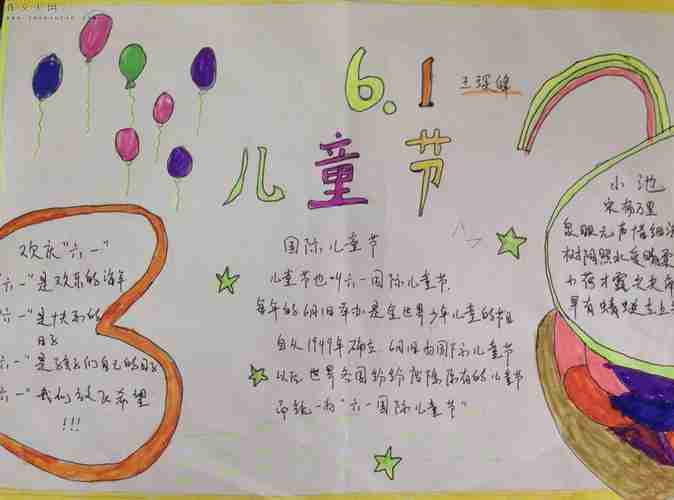 6.1
儿童节
欢庆"六一"
六一"是欢乐的海洋
六一"是快乐的
日子
六一"是孩子们自己的日子
六一"我们放飞希望
!!!
国际儿童节
儿童节也叫六一国际儿童节,
每年的6月1日举办是全世界少年儿童的节日
自从1949年确立6月1日为国际儿童节
以后世界各国纷纷废除原有的儿童节
而统一为"六一国际儿童节"
小池
宋 杨万里
泉眼无声惜细
树阴照水爱晴柔
小荷才露尖尖角
早有蜻蜓立上